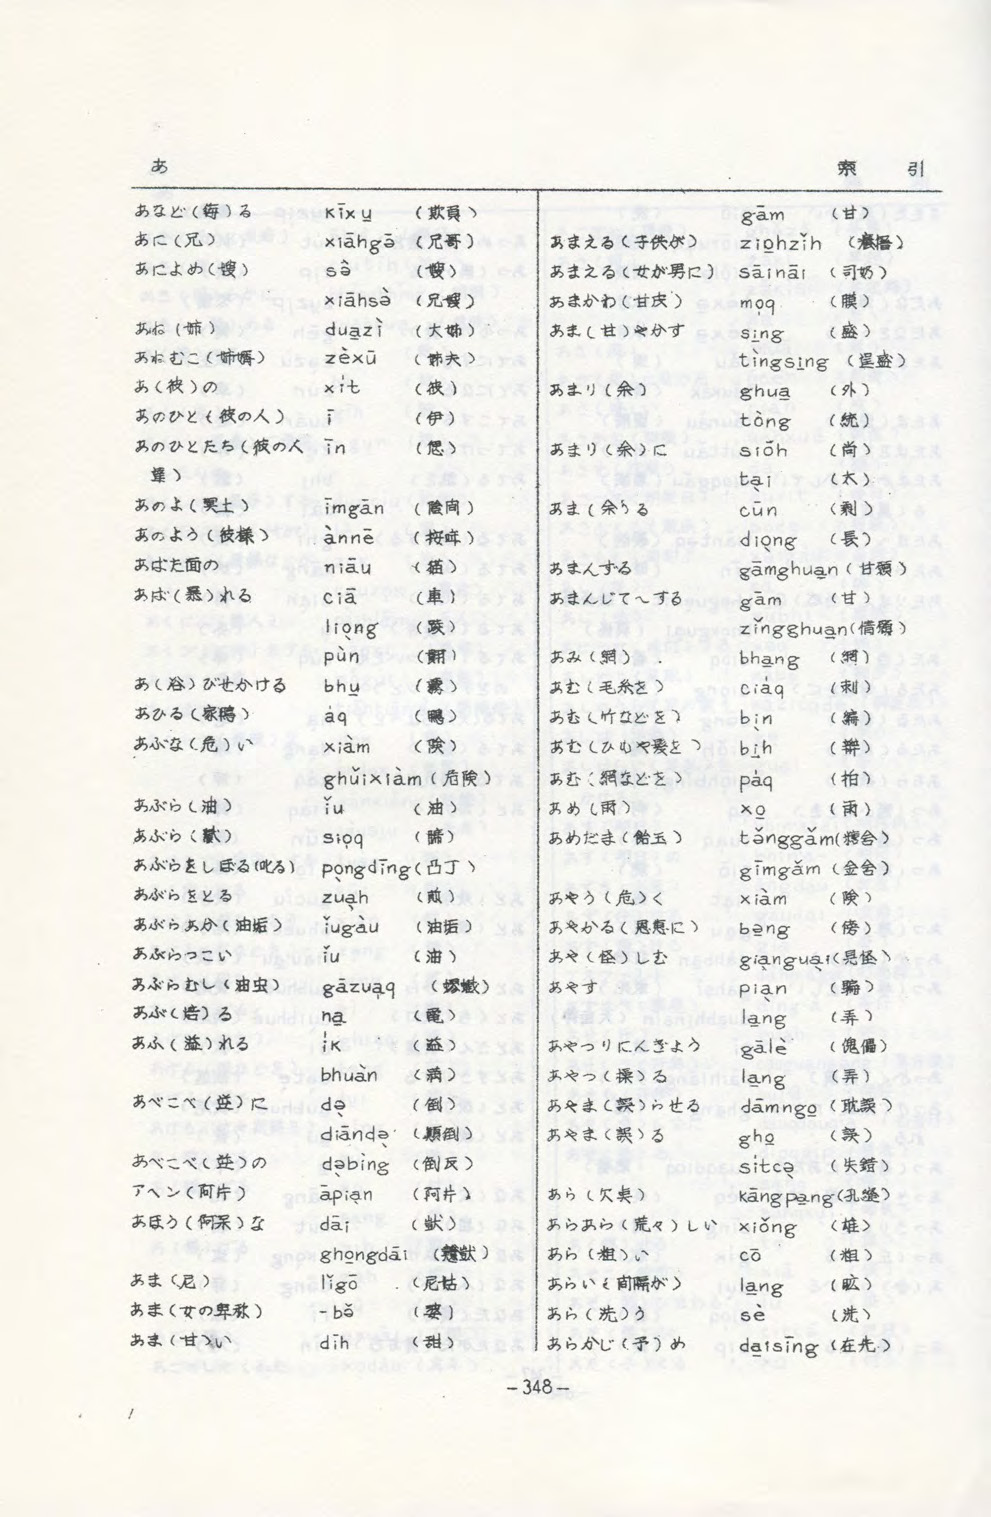 あ 索引
あなど(侮)る kīxu̱ (欺負)
あに(兄) xiāhgə̄ (兄哥)
あによめ(嫂) sə̀ (嫂)
xiāhsə̀ (兄嫂)
あね(姉) dua̱zì (大姉)
あねむこ(姉婿) zèxū (姉夫)
あ(彼)の xit (彼)
あのひと(彼の人) ī (伊)
あのひとたち(彼の人 īn (𪜶)
達)
あのよ(冥土) īmgān (陰間)
あのよう(彼様) ànnē (按年)
あばた面の niāu (猫)
あば(暴)れる ciā (車)
lio̱ng (躘)
pùn (翸)
あ(浴)びせかける bhu̱ (霧)
あひる(家鴨) áq (鴨)
あぶな(危)い xiàm (険)
ghŭixiàm (危険)
あぶら(油) ĭu (油)
あぶら()
あぶらをしぼる(叱る) po̱ngdīng (凸丁)
あぶらをとる zua̱h (煎)
あぶらあか(油垢) ĭugàu (油垢)
あぶらっこい ĭu (油)
あぶらむし(油虫) gāzua̱q
あぶ(焙)る na̱
あふ(溢)れる ík (溢)
bhuàn (満)
あべこべ(逆)に də̱̀ (倒)
diāndə̱̀ (顛倒)
あべこべ(逆)の də̱̀bìng (倒反)
アヘン(阿片) āpia̱n (阿片)
あほう(阿呆)な dāi (獃)
gho̱ngdāi
あま(尼) lĭgō (尼姑)
あま(女の卑称) -bŏ (婆)
あま(甘)い dīh (甜)
gām (甘)
あまえる(子供が) zio̱hzih
あまえる(女が男に) sāināi (司奶)
あまかわ(甘皮) mo̱q (膜)
あま(甘)やかす si̱ng (盛)
tìngsi̱ng (逞盛)
あまり(余) ghua̱ (外)
tòng (統)
あまり(余)に siōh (尚)
ta̱i (太)
あま(余)る cūn (剰)
dio̱ng (長)
あまんずる gāmghua̱n (甘願)
あまんじて～する gām (甘)
zĭngghua̱n (情願)
あみ(網) bha̱ng (網)
あむ(毛糸を) ciáq (刺)
あむ(竹などを) bīn (編)
あむ(ひもや髪を) bi̱h (辮)
あむ(網などを) páq (拍)
あめ(雨) xo̱ (雨)
あめだま(飴玉) tə̆nggăm (糖含)
gīmgăm (金含)
あやう(危)く xiàm (険)
あやかる(恩恵に) bə̱ng (傍)
あや(怪)しむ gia̱nguài (見怪)
あやす pia̱n (騙)
la̱ng (弄)
あやつりにんぎょう gālè (傀儡)
あやつ(操)る la̱ng (弄)
あやま(誤)らせる dāmngo̱ (耽誤)
あやま(誤)る gho̱ (誤)
sitcə̱ (失錯)
あら(欠点) kāngpa̱ng (孔縫)
あらあら(荒々)しい xiŏng (雄)
あら(粗)い cō (粗)
あらい(間隔が) la̱ng
あら(洗)う sè (洗)
あらかじ(予)め da̱isīng (在先)
-348-